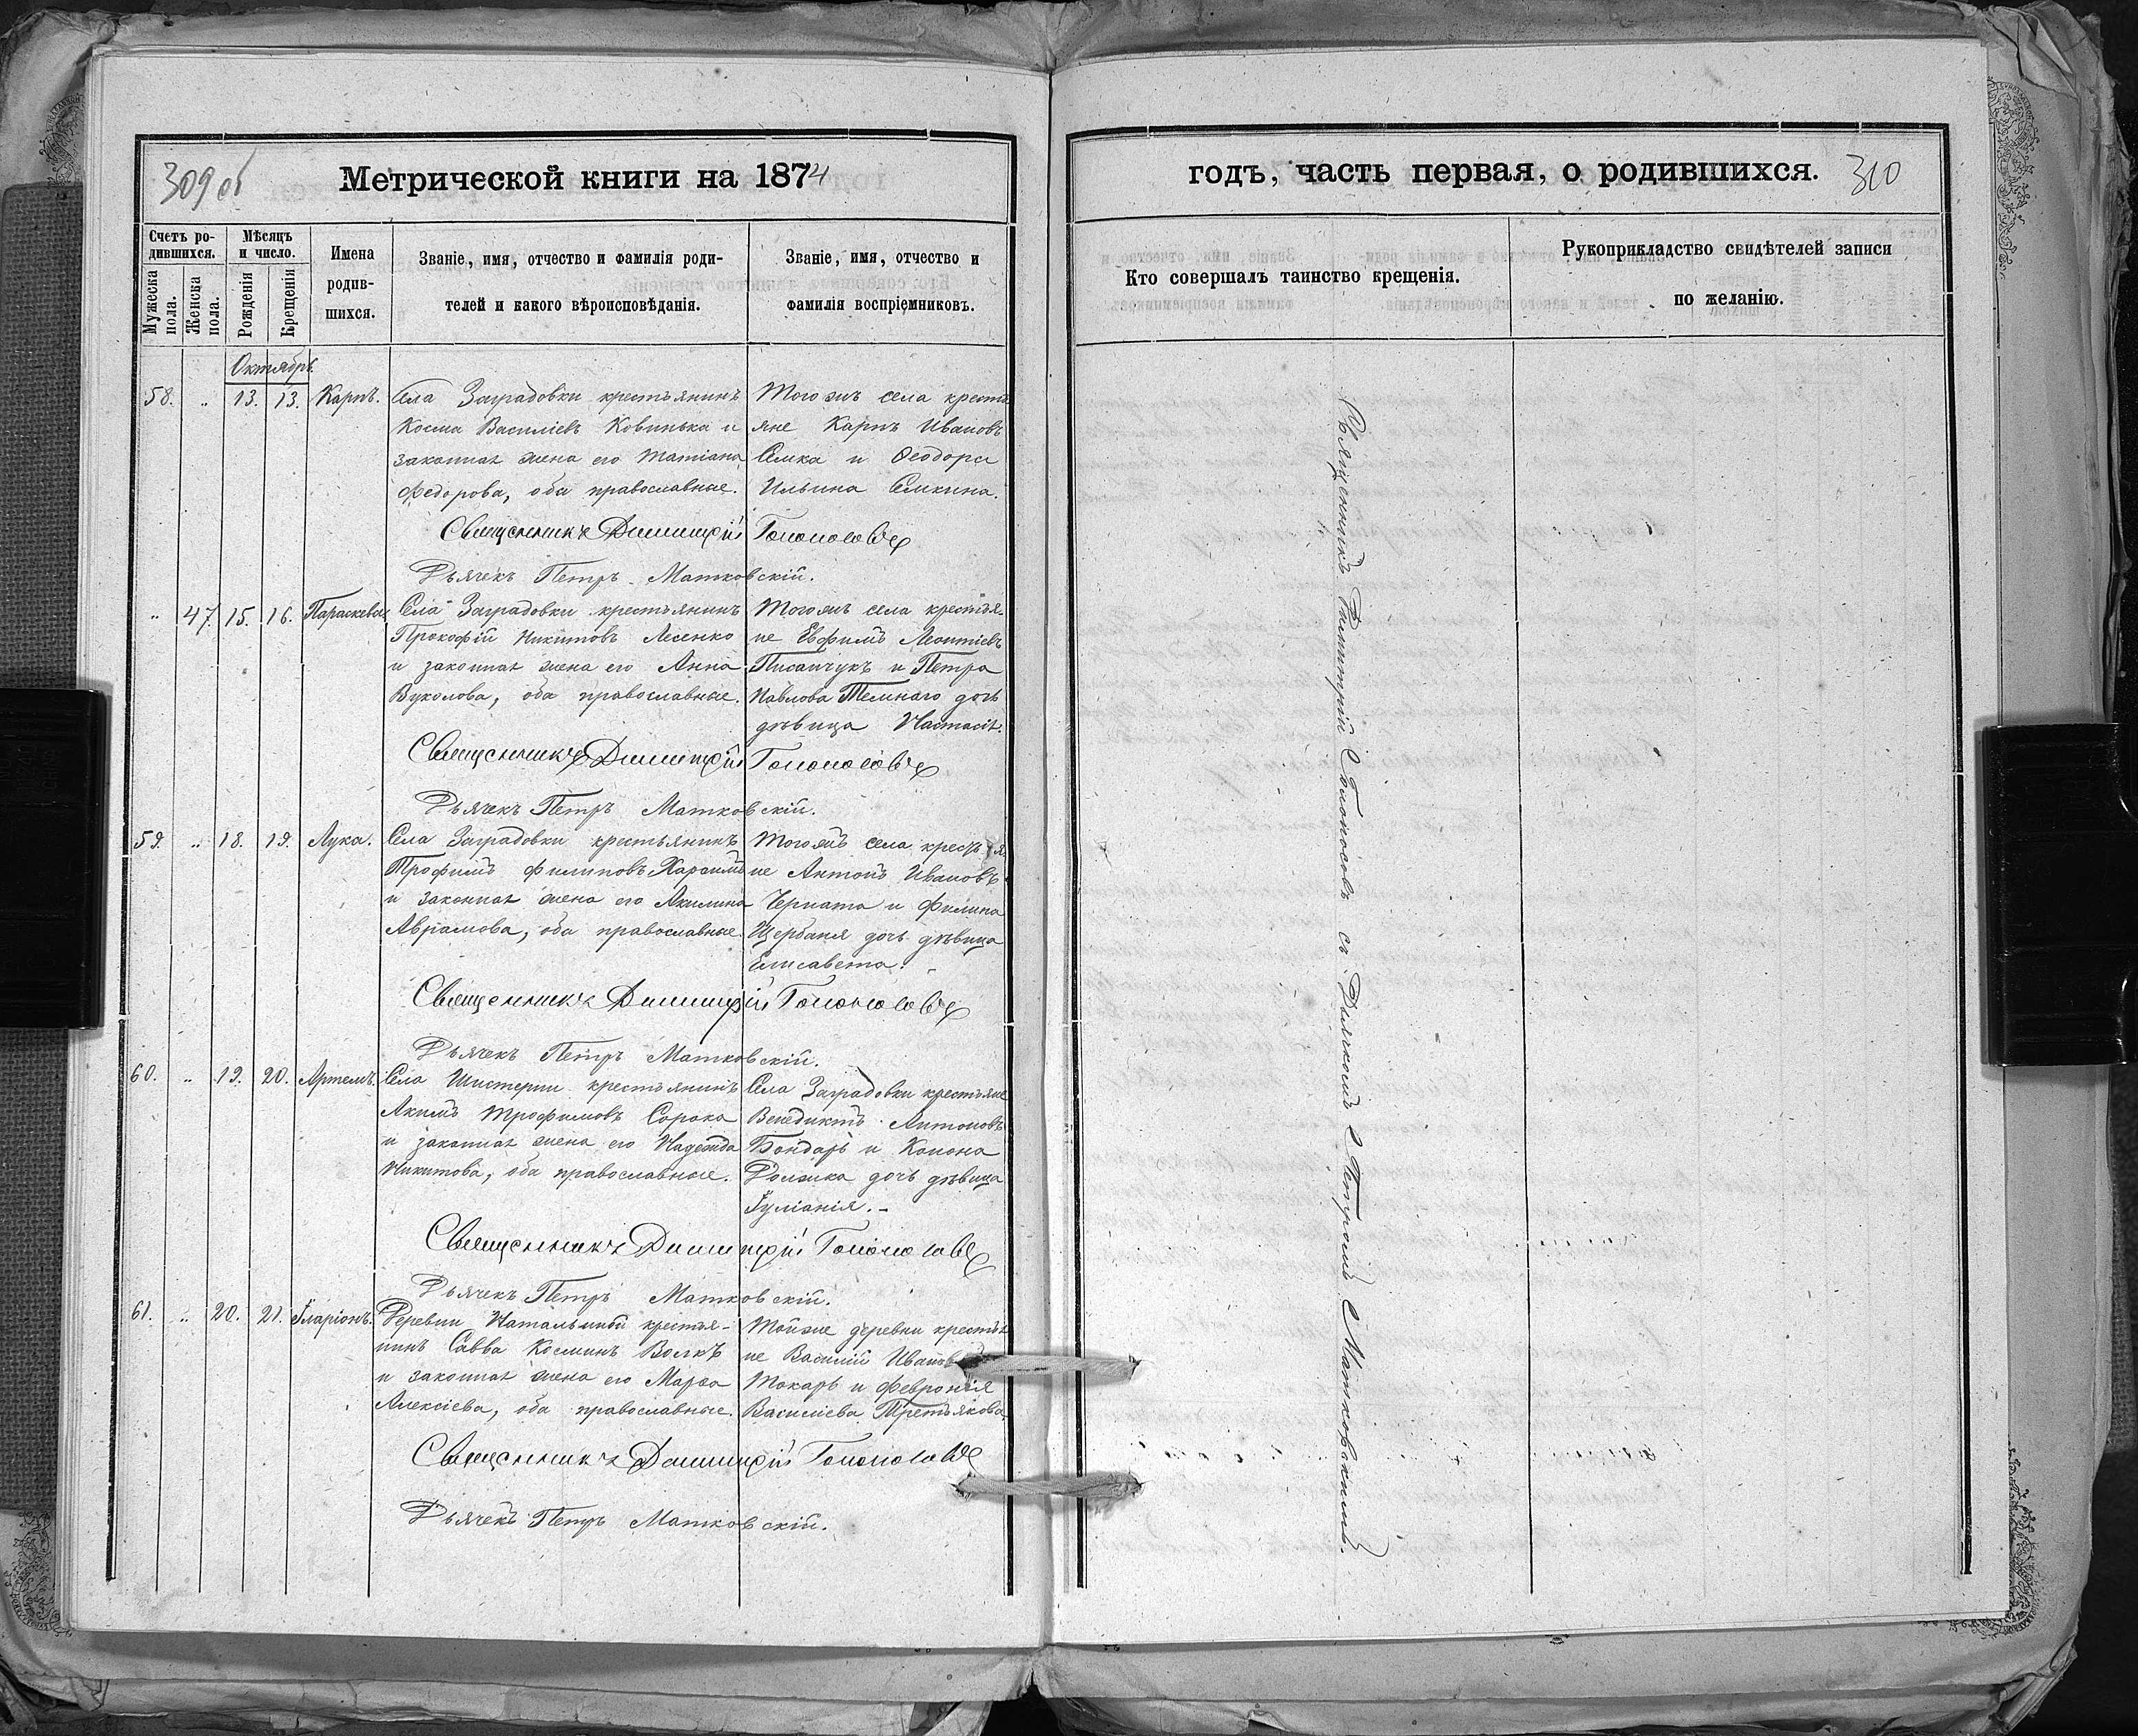 309 об
Метрической книги на 1874
годъ, часть первая, о родившихся.
310
Счетъ ро-
дившихся.
Мужеска
пола.
Женска
пола.
Мѣсяцъ
и число.
Рожденія
Крещенія
Имена
родив-
шихся.
Званіе, имя, отчество и фамилія роди-
телей и какого вѣроисповѣданія.
Званіе, имя, отчество и
фамилія воспріемниковъ.
Кто совершалъ таинство крещенія.
Рукоприкладство свидѣтелей записи
по желанію.
Октябрь.
58. „ 13. 13. Карпъ.
Села Заградовки крестьянинъ
Косма Василіевъ Ковинька и
законная жена его Татіана
Федорова, оба православные.
Того жъ села крестья
яне Карпъ Ивановъ
Семка и Ѳеодора
Ильина Семкина.
Священникъ Димитрій
Дьячекъ Петръ Матковскій.
„ 47. 15. 16. Параскева.
Села Заградовки крестьянинъ
Прокофій Никитовъ Лесенко
и законная жена его Анна
Вуколова, оба православные.
Того жъ села крестья-
не Евфимъ Леонтіевъ
Писанчукъ и Петра
Павлова Темнаго дочь
дѣвица Настасія.
Священникъ Димитрій
Дьячекъ Петръ Матковскій.
59. „ 18. 19. Лука.
Села Заградовки крестьянинъ
Трофимъ Филиповъ
и законная жена его Акилина
Авраамова, оба православные.
Того жъ села крестья-
не Антонъ Ивановъ
и Филипа
Щербаня дочь дѣвица
Елисавета.
Священникъ Димитрій
Дьячекъ Петръ Матковскій.
60. „ 19. 20. Артемъ.
Села Шистерни крестьянинъ
Акимъ Трофимовъ Сорока
и законная жена его Надежда
Никитова, оба православные.
Села Заградовки крестьяне
Венедиктъ Антоновъ
Бондарь и Конона
дочь дѣвица
Іуліанія.
Священникъ Димитрій
Дьячекъ Петръ Матковскій.
61. „ 20. 21. Іларіонъ.
Деревни Натальиной крестья-
нинъ Савва Косминъ Волкъ
и законная жена его Марѳа
Алексіева, оба православные.
Той же деревни крестья
не Василій Ивановъ
Токарь и Февронія
Василіева Третьякова.
Священникъ Димитрій
Дьячекъ Петръ Матковскій.
Священникъ Димитрій съ Дьячкомъ Петромъ Матковскимъ.